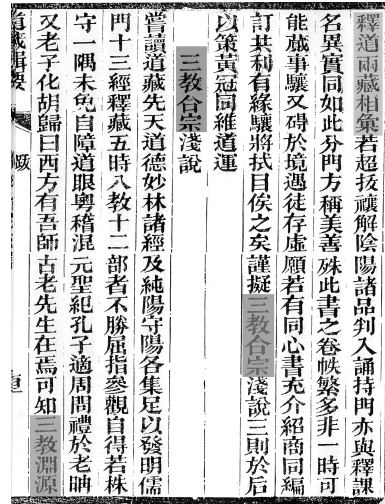 釋道兩藏相彙若超拔禳解陰陽諸品判入誦持門亦與釋課
名異實同如此分門方稱美善殊此書之卷帙繁多非一時可
能蕆事驤又碍於境遇徒存虛願若有同心書充介紹商同編
訂共利有緣驤將拭目俟之矣謹擬三教合宗淺說三則於后
以策黃冠同維道運
三教合宗淺說
嘗讀道藏先天道德妙林諸經及純陽守陽各集足以發明儒
門十三經釋藏五時八教十二部者不勝屈指參觀自得若株
守一隅未免自障道眼粵稽混元聖紀孔子適周問禮於老聃
又老子化胡歸曰西方有吾師古老先生在焉可知三教淵源
道藏輯要 跋